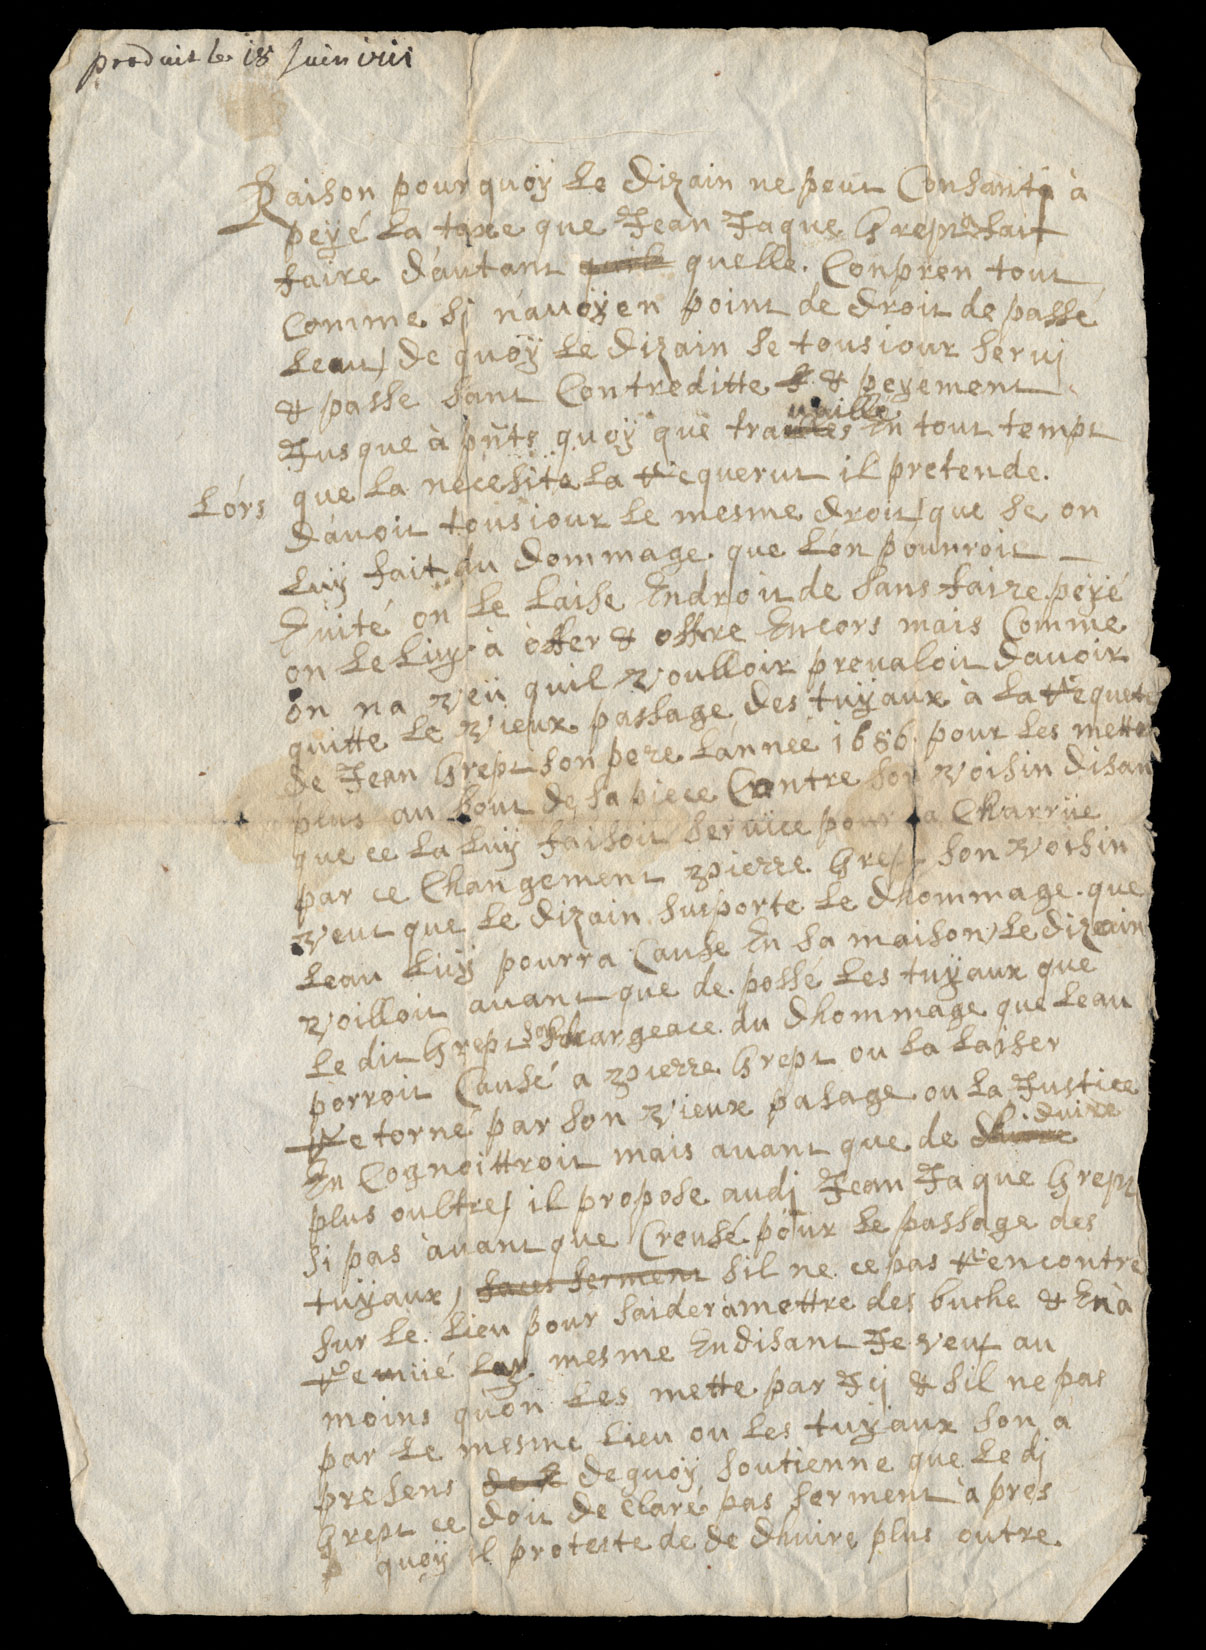 produit le 18 Juin 1711
Raison pourquoÿ Le Dizain ne peut Consanti à
peÿé La taxe que Jean Jaque Grept a fait
faire d'autant quelle Conprén tout
Comme si n'auoÿen point de droit de passé
Leau, de quoÿ Le Dizain se tousiour serui
& passe sant Contreditte & peyement
Jusque à pñts quoÿ que trauaillé En tout tempt
que La nécesite La requerut il pretende.
Lórs
D'auoit tousiour Le mesme droit, que se on
Luÿ fait du dommage que Lón pourroit
Euité on Le Laise Endroit de sans faire peÿé
on Le Luÿ à offer & offre Encors mais Comme
on na veü quil voulloir prevaloit Dauoir
quitte Le vieux passage des tuÿaux à La requete
de Jean Grept son pere Lánneé 1686 pour Les mettre
plus au bout de sa piece Contre son voisin disan
que ce La Luÿ faisoit seruice pour sa Charrüe
par ce Changement pierre Grept son voisin
veut que Le dizain suiporte Le dhommage que
Leau Luÿ pourra Cause En sa maison, Le dizain
voilloit auant que de possé Les tuÿaux que
Le dit Grept Chargeace du dhommage que Leau
porroit Causé a pierre Grept ou La Laiser
retorné par son vieux pasage ou La Justice
En Cognoittroit mais auant que de dhuire
plus oultre, il propose audi Jean Jaque Grept
si pas auant que Creusé pour Le passage des
tuÿaux, faces serment sil ne ce pas rencontré
sur Le Lieu pour saider à mettre des buche & En à
remüé Luy mesme Endisant Je veut au
moins quón Les mette par Jÿ & sil ne pas
par Le mesme Lieu ou Les tuÿaux son a
presens de quoÿ soutienne que Le di
Grept ce doit de Claré pas serment à pres
quoÿ il proteste de de dhuire plus outre.